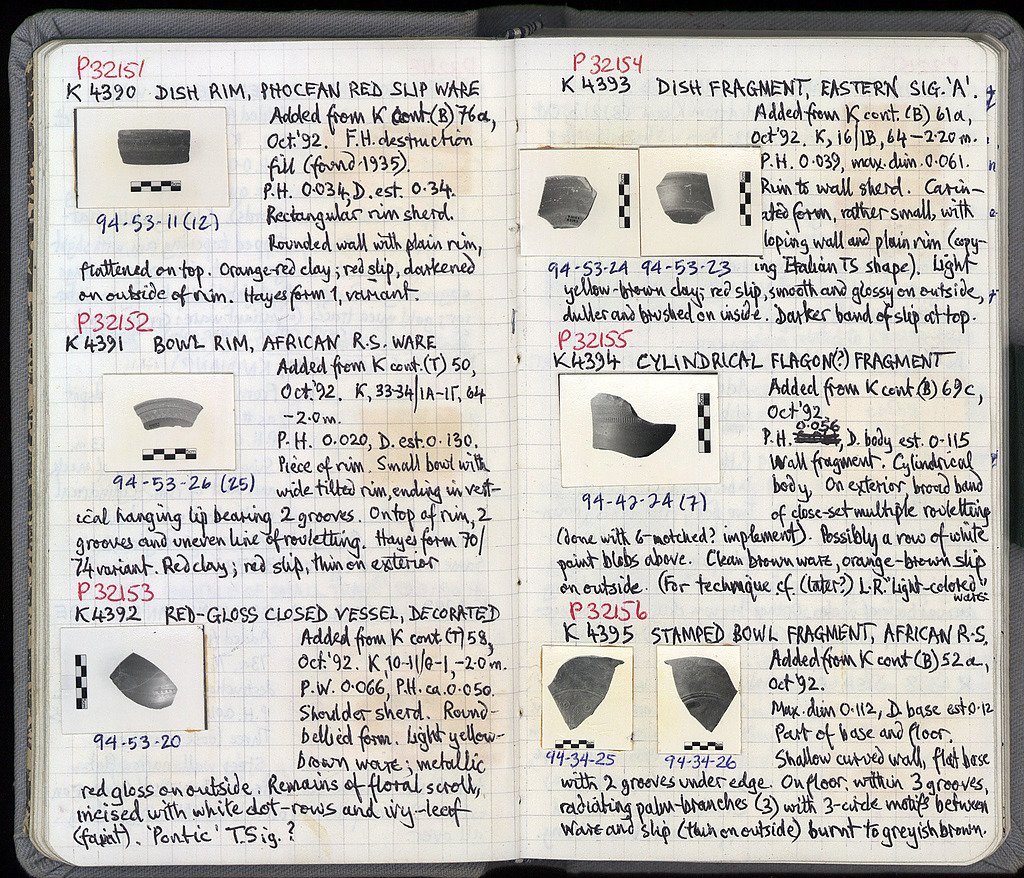 P32151
K 4390 DISH RIM, PHOCEAN RED SLIP WARE
Added from K cont. (B) 76a,
Oct.'92. F.H. destruction
fill (found 1935).
P.H. 0.034, D. est. 0.34.
Rectangular rim sherd.
94-53-11 (12)
Rounded wall with plain rim,
flattened on top. Orange-red clay; red slip, darkened
on outside of rim. Hayes form 1, variant.
P32152
K 4391 BOWL RIM, AFRICAN R.S. WARE
Added from K cont. (T) 50,
Oct.'92. K, 33-34/1A-1T, 64
-2.0m.
P.H. 0.020, D. est. 0.130.
Piece of rim. Small bowl with
94-53-26 (25)
wide tilted rim, ending in vert-
ical hanging lip bearing 2 grooves. On top of rim, 2
grooves and uneven line of rouletting. Hayes form 70/
74 variant. Red clay; red slip, thin on exterior
P32153
K 4392 RED-GLOSS CLOSED VESSEL, DECORATED
Added from K cont (T) 58,
Oct.'92. K 10-11/θ-1, -2.0m.
P.W. 0.066, P.H. ca. 0.050.
Shoulder sherd. Round-
bellied form. Light yellow-
94-53-20
brown ware; metallic
red gloss on outside. Remains of floral scroll,
incised with white dot-rows and ivy-leaf
(faint). 'Pontic' T.Sig.?
P32154
K 4393 DISH FRAGMENT, EASTERN SIG. 'A'.
Added from K cont. (B) 61a,
Oct'92. K, 16/IB, 64-2.20m.
P.H. 0.039, max. dim. 0.061.
Rim to wall sherd. Carin-
ated form, rather small, with
loping wall and plain rim (copy-
94-53-24 94-53-23
ing Italian TS shape). Light
yellow-brown clay; red slip, smooth and glossy on outside,
duller and brushed on inside. Darker band of slip at top.
P32155
K4394 CYLINDRICAL FLAGON(?) FRAGMENT
Added from K cont (B) 69c,
Oct'92.
0.056
P.H. , D. body est. 0.115
Wall fragment. Cylindrical
body. On exterior broad band
94-42-24 (7)
of close-set multiple rouletting
(done with 6-notched? implement). Possibly a row of white
paint blobs above. Clean brown ware, orange-brown slip
on outside. (For technique, cf. (later?) L.R. "Light-colored"
ware.
P32156
K 4395 STAMPED BOWL FRAGMENT, AFRICAN R.S.
Added from K cont (B) 52a,
Oct'92.
Max. dim 0.112, D. base est 0.12
Part of base and floor.
94-34-25 94-34-26
Shallow curved wall, flat base
with 2 grooves under edge. On floor, within 3 grooves,
radiating palm-branches (3) with 3-circle motifs between
Ware and slip (thin on outside) burnt to greyish brown.